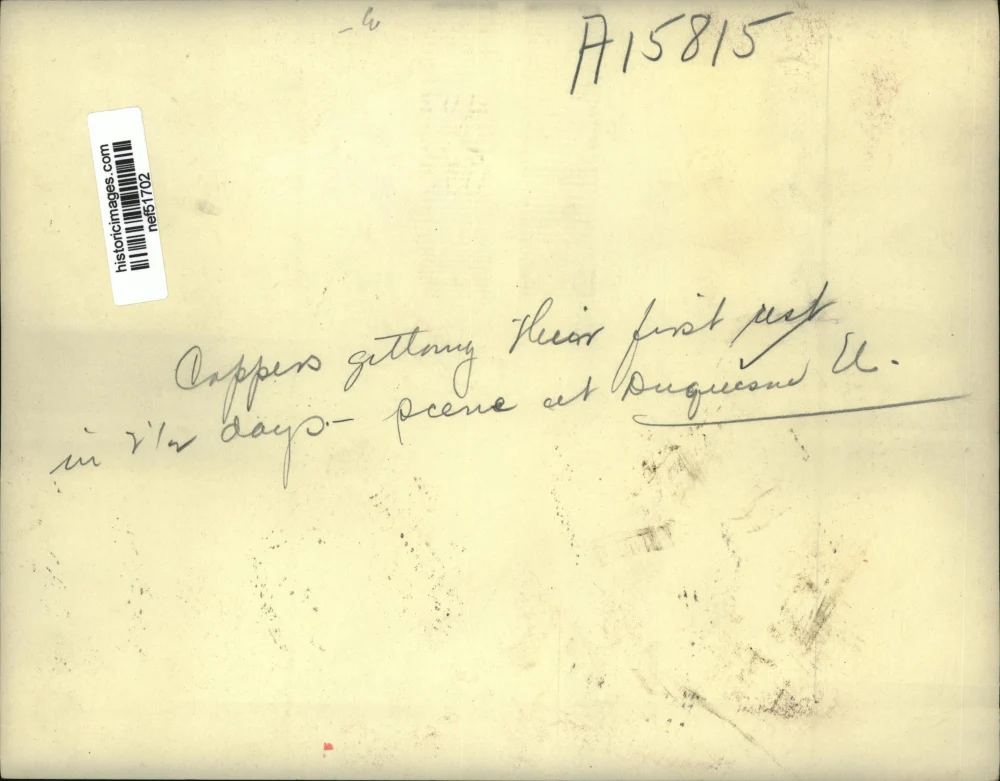 A15815
historicimages.com
nef51702
Coppers getting their first rest
in 2 1/2 days - scene at Duquesne El.